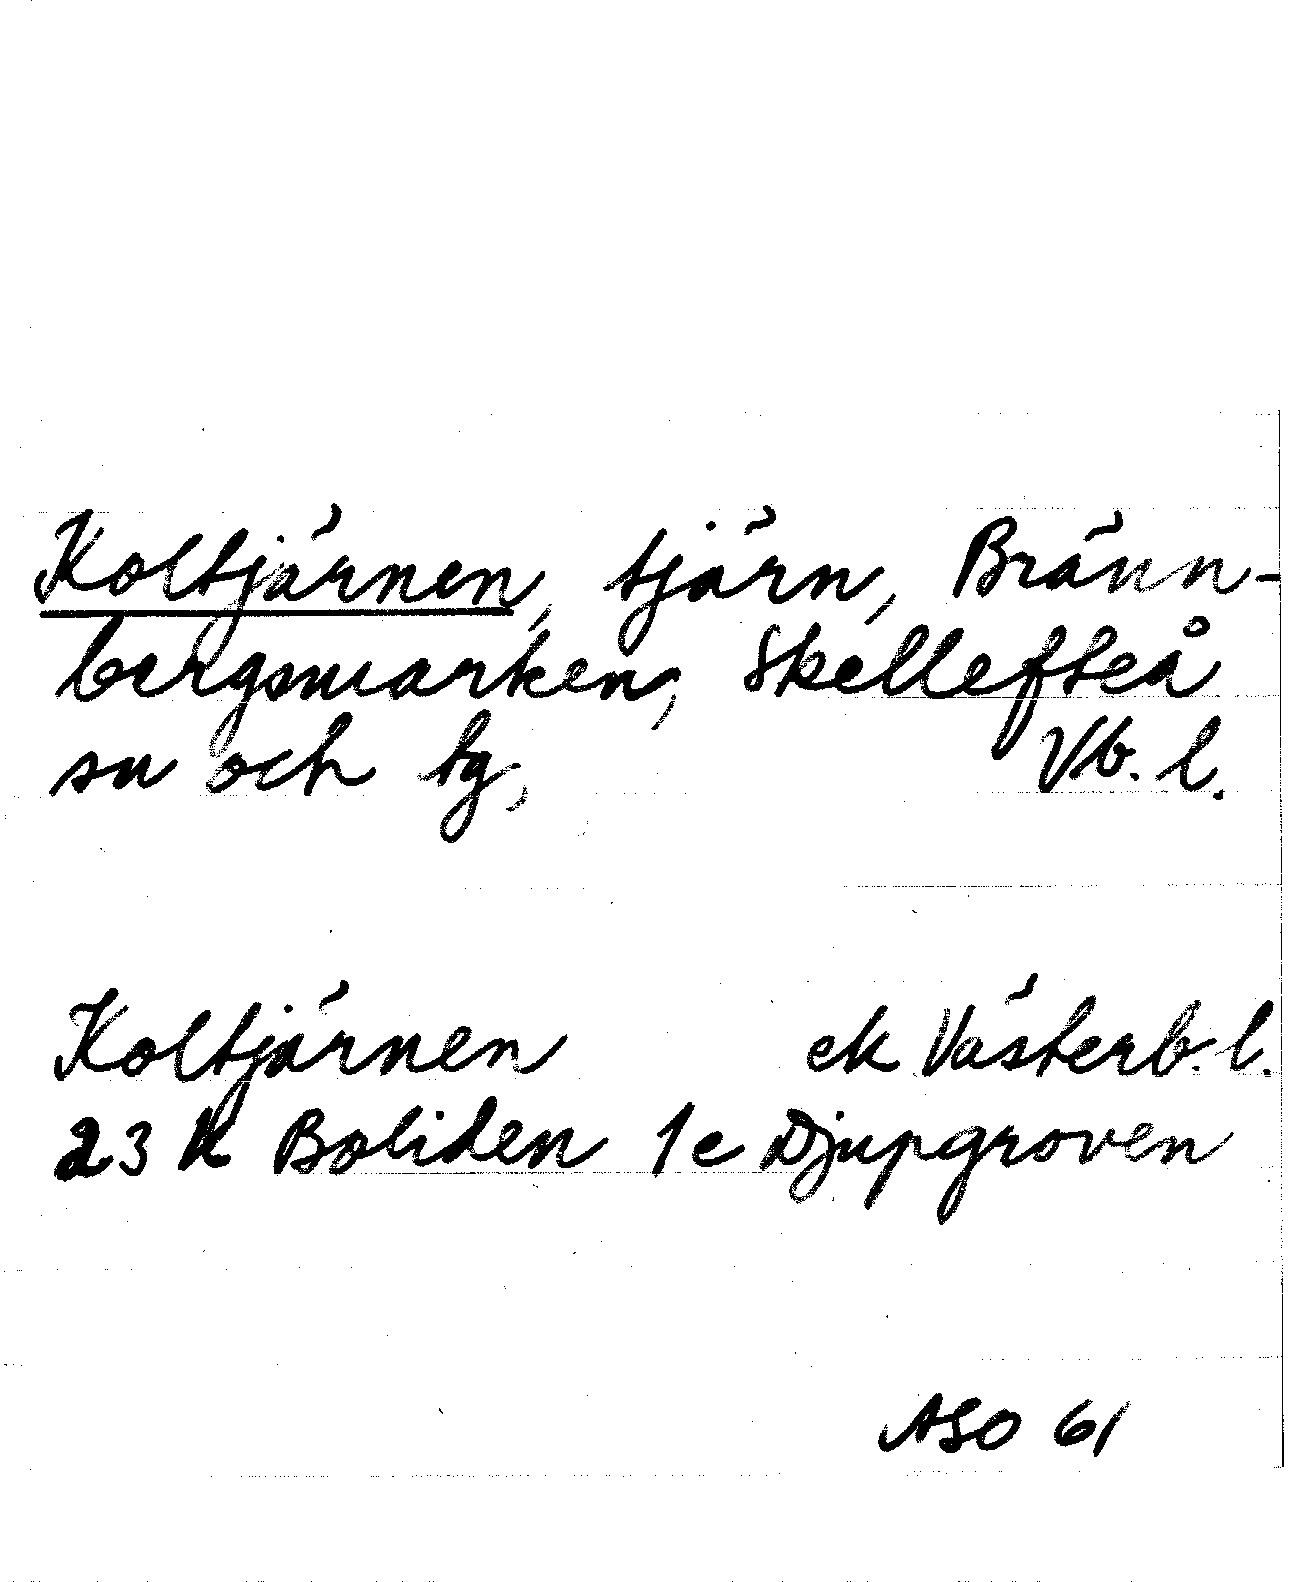 Koltjärnen, tjärn, Bränn-
bergsmarken, Skellefteå
sn och tg, Vb. l.
Koltjärnen ek Västerb. l.
23 K Boliden 1e Djupgroven
ASO 61